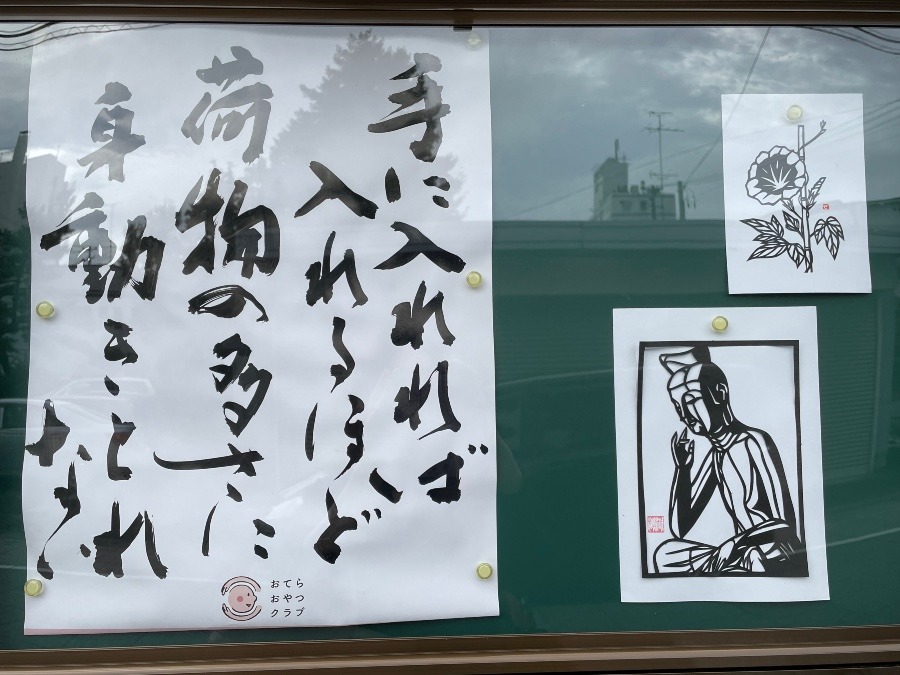 手に入れればば
入れるほど
荷物の多さに
身動きとれ
ない
おてら
おやつ
クラブ